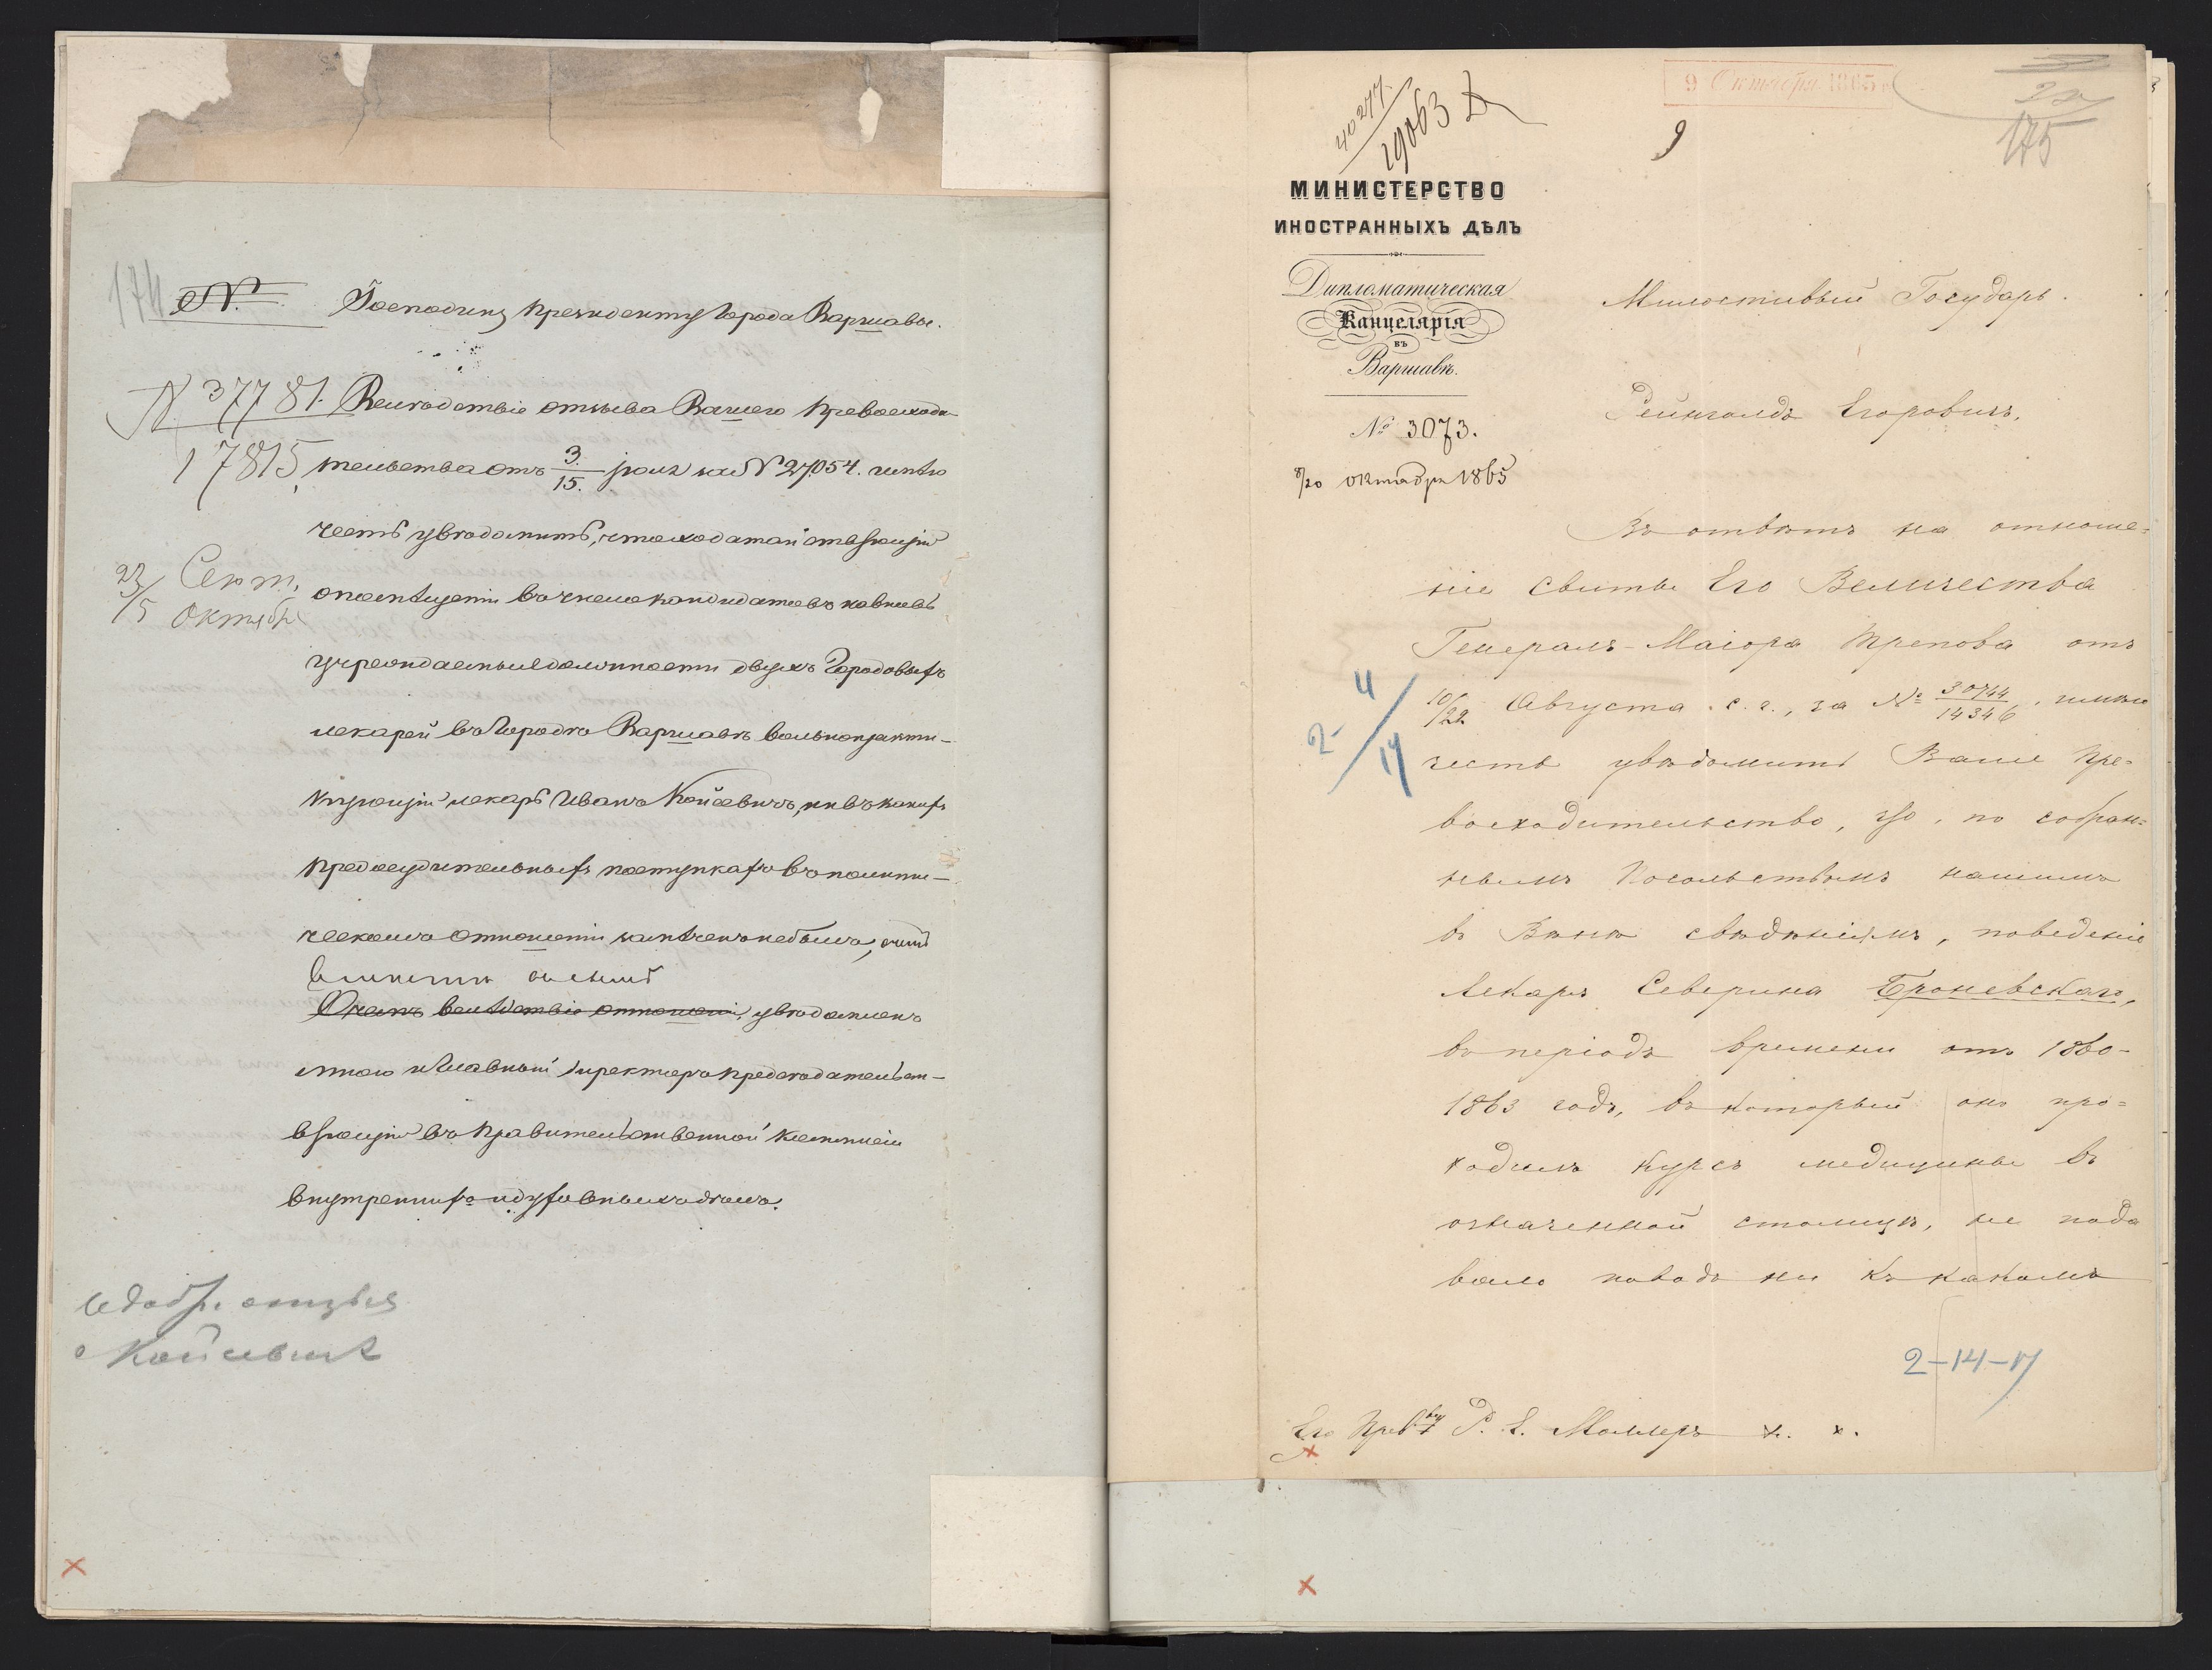 174
N.
Господину Президенту Города Варшавы.
N 37781.
17815
23/5 Сент. Октября
Вслѣдствіе отзыва Вашего Превосходи-
тельства отъ 3/15 іюля за N 27,054. имѣю
честь увѣдомить, что ходатайствующій
о помѣщеніи въ число кандидатовъ на вновь
учреждаемыя должности двухъ Городовыхъ
лекарей въ Городѣ Варшавѣ вольнопракти-
кующій лекарь Иванъ Койсевичъ, ни въ какихъ
предосудительныхъ поступкахъ въ полити-
ческомъ отношеніи замѣченъ не былъ,
вслѣдствіе отношенія, увѣдомленъ
мною и Главный Директоръ Предсѣдательст-
вующій въ Правительственной Коммисіи
внутреннихъ и духовныхъ дѣлъ.
о Койсевичѣ
40277/19063
9 Октября 1865 г.
9
175
МИНИСТЕРСТВО
ИНОСТРАННЫХЪ ДѢЛЪ
Дипломатическая
Канцелярія
въ
Варшавѣ.
№ 3073.
8/20 октября 1865
Милостивый Государь
Рейнгольдъ Егоровичъ,
Въ отвѣтъ на отноше=
ніе Свиты Его Величества
Генералъ-Маіора Трепова отъ
10/22 Августа с. г., за № 30744/14346, имѣю
честь увѣдомить Ваше Пре=
восходительство, что, по собран=
нымъ Посольствомъ нашимъ
въ Вѣнѣ свѣдѣніямъ, поведеніе
лекаря Северина Броневскаго,
въ періодъ времени отъ 1860-
1863 годъ, въ который онъ про=
ходилъ курсъ медицины въ
означенной столицѣ, не пода
вало повода ни къ какимъ
2-14-17
Его Прев-ву Р. Е. Моллеръ